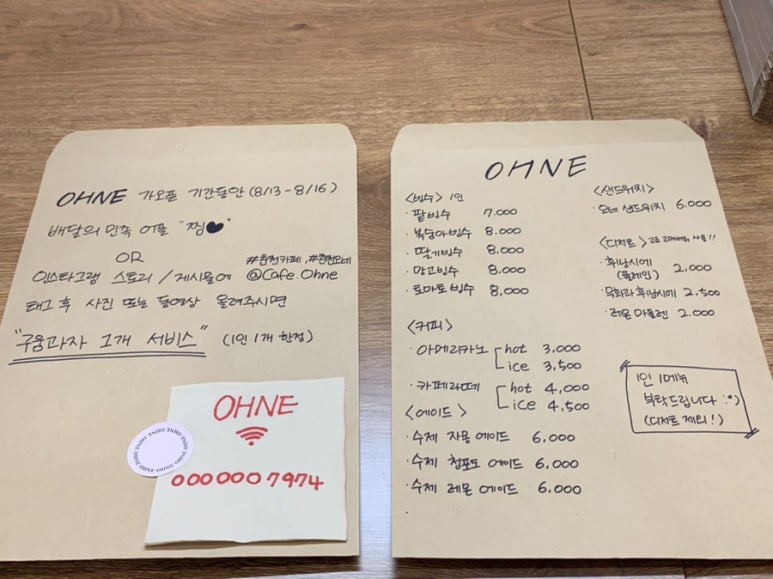 OHNE 가오픈 기간동안 (8/13-8/16)
배달의 민족 어플 "찜♥"
OR
#춘천카페, #춘천오네
인스타그램 스토리 / 게시물에 @Cafe.Ohne
태그 후 사진 또는 동영상 올려주시면
"구움과자 1개 서비스" (1인 1개 한정)
OHNE
0000007974
OHNE
<빙수> 1인
·팥빙수 7,000
·복숭아빙수 8,000
·딸기빙수 8,000
·망고빙수 8,000
·토마토빙수 8,000
<커피>
·아메리카노 hot 3,000
ice 3,500
·카페라떼 hot 4,000
ice 4,500
<에이드>
·수제 자몽 에이드 6,000
·수제 청포도 에이드 6,000
·수제 레몬 에이드 6,000
<샌드위치>
·오네 샌드위치 6,000
<디저트> 고메버터 사용!!
·휘낭시에 (플레인) 2,000
·무화과 휘낭시에 2,500
·레몬 마들렌 2,000
1인 1메뉴
부탁드립니다 :)
(디저트 제외!)